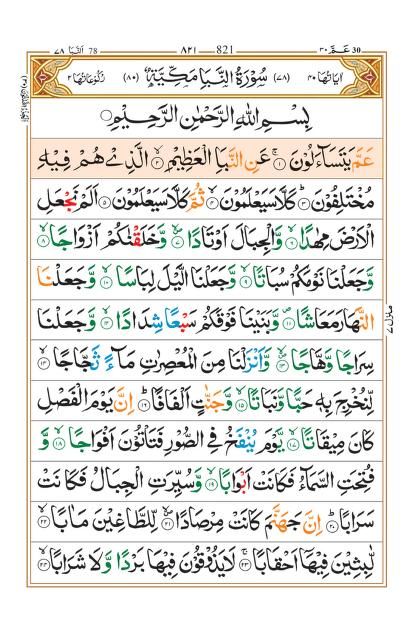 النبا 78 ٧٨ 821 ٨٢١ عم 30 ٣٠
اٰيَاتُهَا ٤٠ (٧٨) سُوْرَةُ النَّبَاِ مَكِّيَّةٌ (٨٠) رُكُوْعَاتُهَا ٢
بِسْمِ اللّٰهِ الرَّحْمٰنِ الرَّحِيْمِ
عَمَّ يَتَسَآءَلُوْنَ ۚ ١ عَنِ النَّبَاِ الْعَظِيْمِ ۙ ٢ الَّذِيْ هُمْ فِيْهِ
مُخْتَلِفُوْنَ ؕ ٣ كَلَّا سَيَعْلَمُوْنَ ۙ ٤ ثُمَّ كَلَّا سَيَعْلَمُوْنَ ٥ اَلَمْ نَجْعَلِ
الْاَرْضَ مِهٰدًا ۙ ٦ وَّ الْجِبَالَ اَوْتَادًا ۪ ٧ وَّ خَلَقْنٰكُمْ اَزْوَاجًا ۙ ٨
وَّ جَعَلْنَا نَوْمَكُمْ سُبَاتًا ۙ ٩ وَّ جَعَلْنَا الَّيْلَ لِبَاسًا ۙ ١٠ وَّ جَعَلْنَا
النَّهَارَ مَعَاشًا ۪ ١١ وَّ بَنَيْنَا فَوْقَكُمْ سَبْعًا شِدَادًا ۙ ١٢ وَّ جَعَلْنَا
سِرَاجًا وَّهَّاجًا ۪ ١٣ وَّ اَنْزَلْنَا مِنَ الْمُعْصِرٰتِ مَآءً ثَجَّاجًا ۙ ١٤
لِّنُخْرِجَ بِهٖ حَبًّا وَّ نَبَاتًا ۙ ١٥ وَّ جَنّٰتٍ اَلْفَافًا ؕ ١٦ اِنَّ يَوْمَ الْفَصْلِ
كَانَ مِيْقَاتًا ۙ ١٧ يَّوْمَ يُنْفَخُ فِي الصُّوْرِ فَتَاْتُوْنَ اَفْوَاجًا ۙ ١٨ وَّ
فُتِحَتِ السَّمَآءُ فَكَانَتْ اَبْوَابًا ۙ ١٩ وَّ سُيِّرَتِ الْجِبَالُ فَكَانَتْ
سَرَابًا ؕ ٢٠ اِنَّ جَهَنَّمَ كَانَتْ مِرْصَادًا ۪ ٢١ لِّلطَّاغِيْنَ مَاٰبًا ۙ ٢٢
لّٰبِثِيْنَ فِيْهَاۤ اَحْقَابًا ۚ ٢٣ لَا يَذُوْقُوْنَ فِيْهَا بَرْدًا وَّ لَا شَرَابًا ۙ ٢٤
منزل ٧